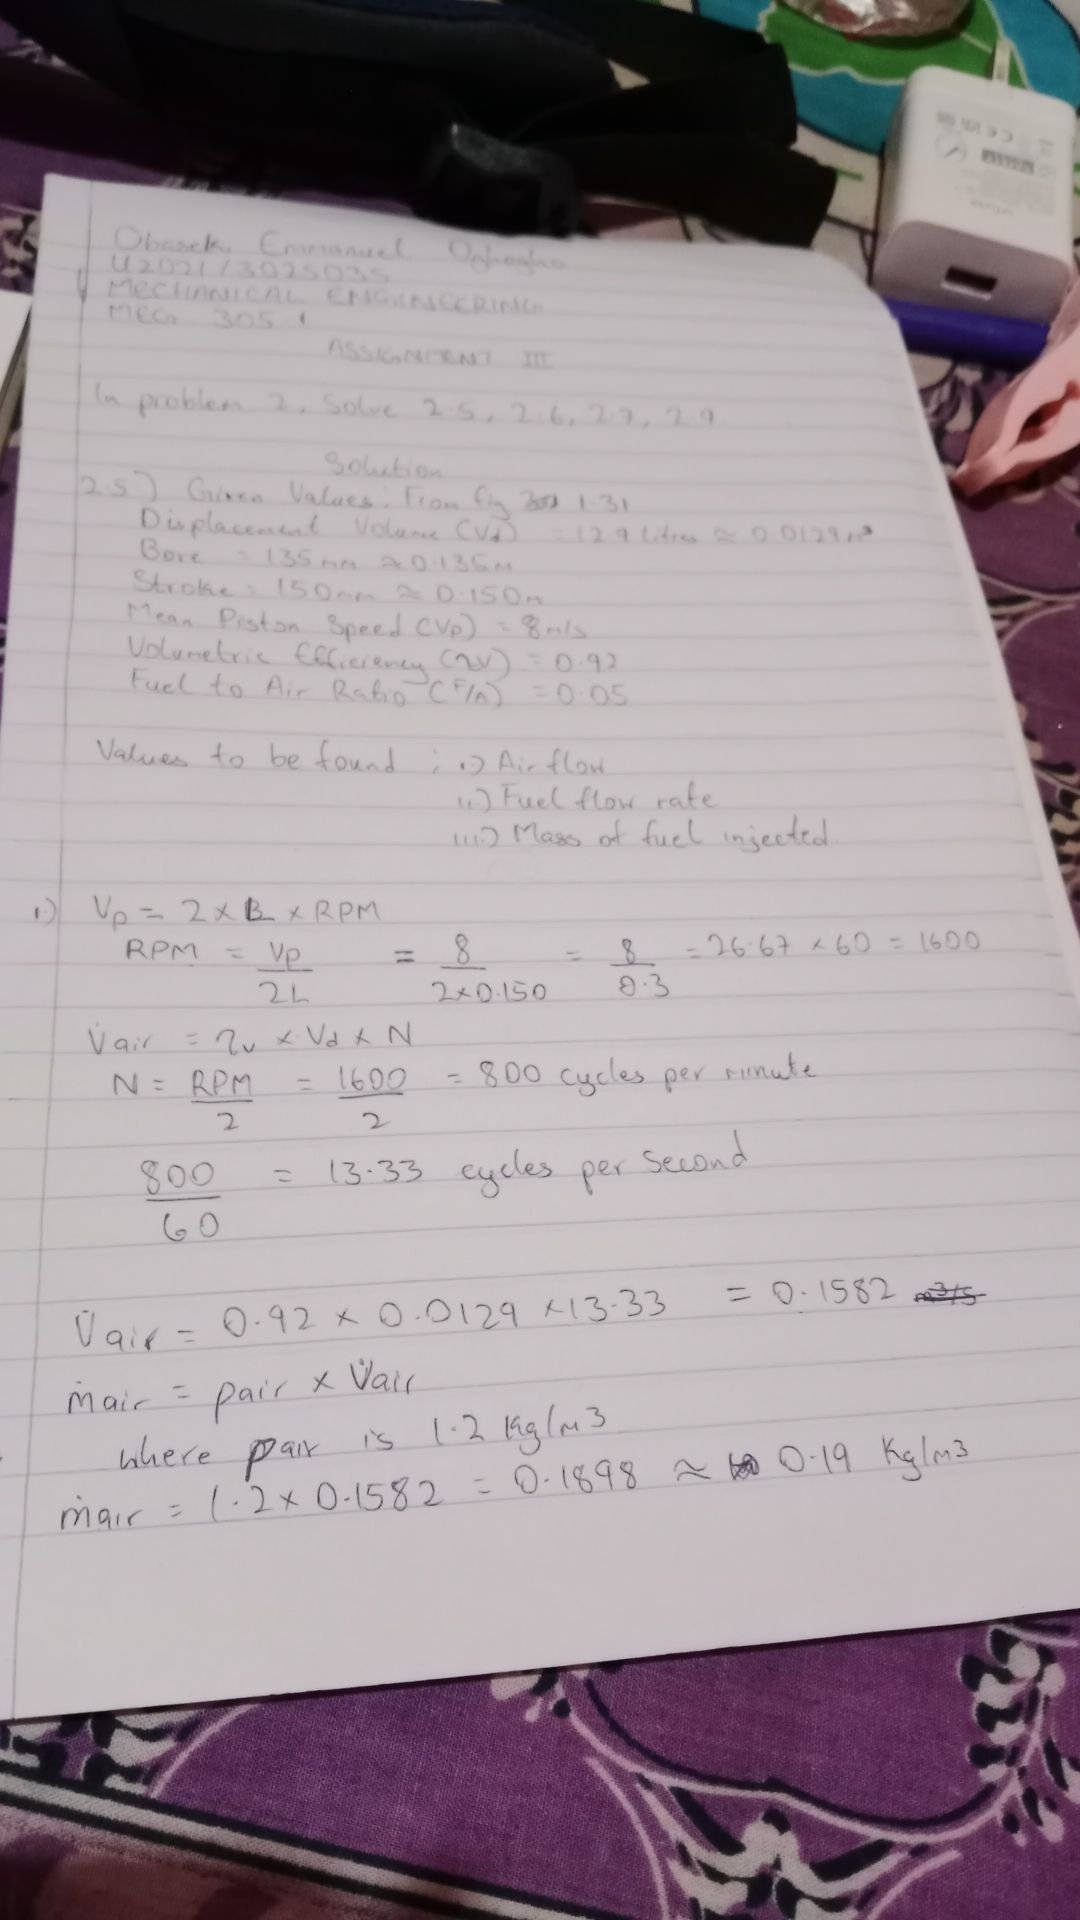 Obaseki Emmanuel Oghogho
U2021/3025035
MECHANICAL ENGINEERING
MEG 305.1
ASSIGNMENT III
In problem 2, Solve 2.5, 2.6, 2.7, 2.9
Solution
2.5) Given Values: From fig 1.31
Displacement Volume (Vd) = 12.9 litres ≈ 0.0129m³
Bore = 135mm ≈ 0.135m
Stroke = 150mm ≈ 0.150m
Mean Piston Speed (Vp) = 8m/s
Volumetric Efficiency (ηv) = 0.92
Fuel to Air Ratio (F/A) = 0.05
Values to be found : i) Air flow
ii) Fuel flow rate
iii) Mass of fuel injected.
i) Vp = 2 × L × RPM
RPM = Vp/2L = 8/2×0.150 = 8/0.3 = 26.67 × 60 = 1600
V̇air = ηv × Vd × N
N = RPM/2 = 1600/2 = 800 cycles per minute
800/60 = 13.33 cycles per second
V̇air = 0.92 × 0.0129 × 13.33 = 0.1582 m3/s
ṁair = ρair × V̇air
where ρair is 1.2 Kg/m3
ṁair = 1.2 × 0.1582 = 0.1898 ≈ 0.19 Kg/m3